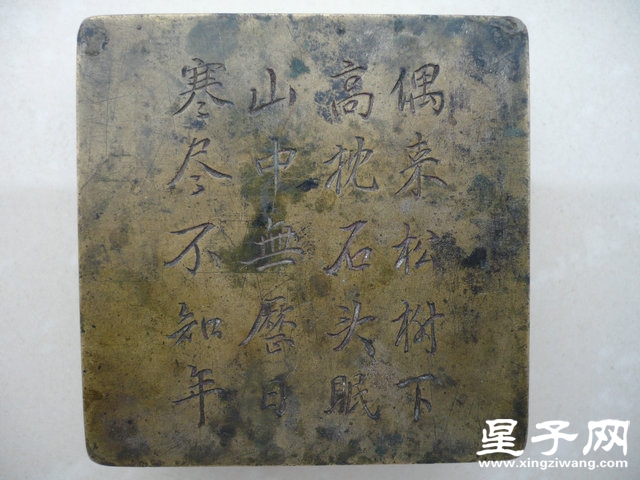 偶来松樹下
高枕石头眠
山中無曆日
寒尽不知年
星子网
www.xingziwang.com